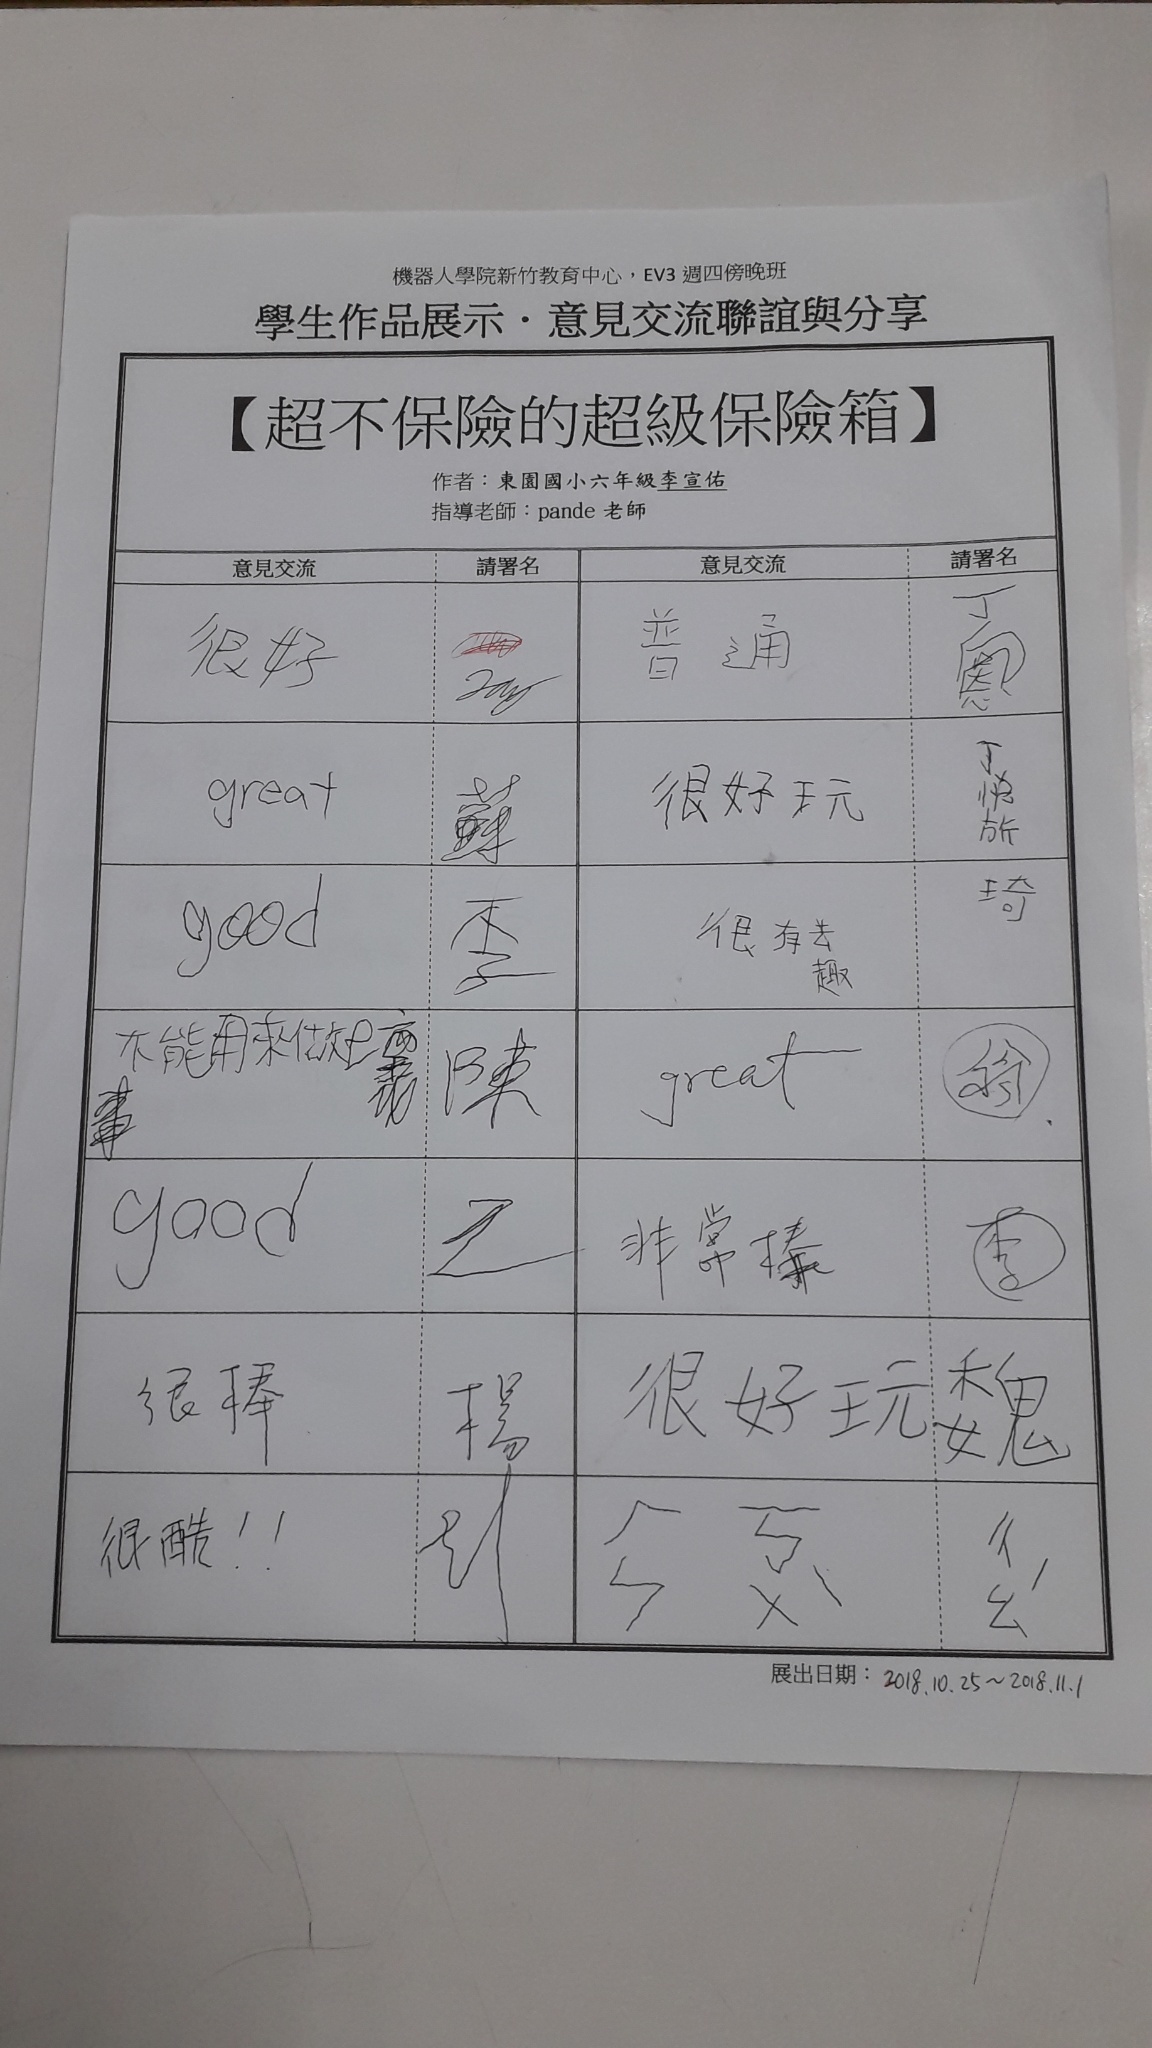 機器人學院新竹教育中心，EV3 週四傍晚班
學生作品展示．意見交流聯誼與分享
【超不保險的超級保險箱】
作者：東園國小六年級李宣佑
指導老師：pande 老師
意見交流 請署名 意見交流 請署名
很好 普通 丁
great 蘇 很好玩 丁悅
good 李 很有去趣 琦
不能用來做 陳 great
good 乙 非常棒 李
很棒 楊 很好玩 魏
很酷!!
展出日期：2018.10.25～2018.11.1